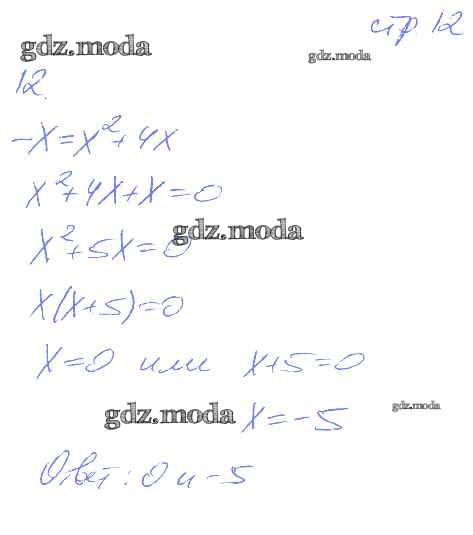 стр 12
gdz.moda
gdz.moda
12.
-x=x²+4x
x²+4x+x=0
x²+5x=0
gdz.moda
x(x+5)=0
x=0 или x+5=0
gdz.moda
x=-5
gdz.moda
Ответ: 0 и -5